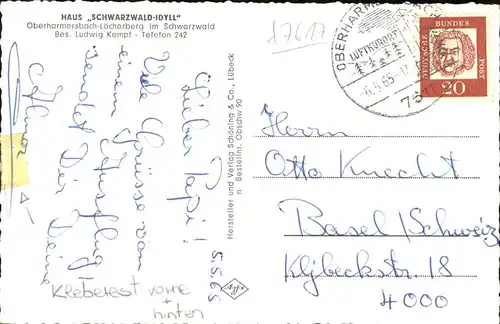 HAUS „SCHWARZWALD-IDYLL"
Oberharmersbach-Löcherberg im Schwarzwald
Bes. Ludwig Kempf - Telefon 242
17617
LUFTKURORT
-6.5.65-17
DEUTSCHE BUNDESPOST
20
5.5.65
Lieber Papi!
Viele Grüsse von
einem Ausflug
sendet Dir Deine
Hersteller und Verlag Schöning & Co., Lübeck
Bestellnr. Obschw 90
Herrn
Otto Knecht
Basel/Schweiz
Klybeckstr. 18
4000
Kleberest vorne
+
hinten